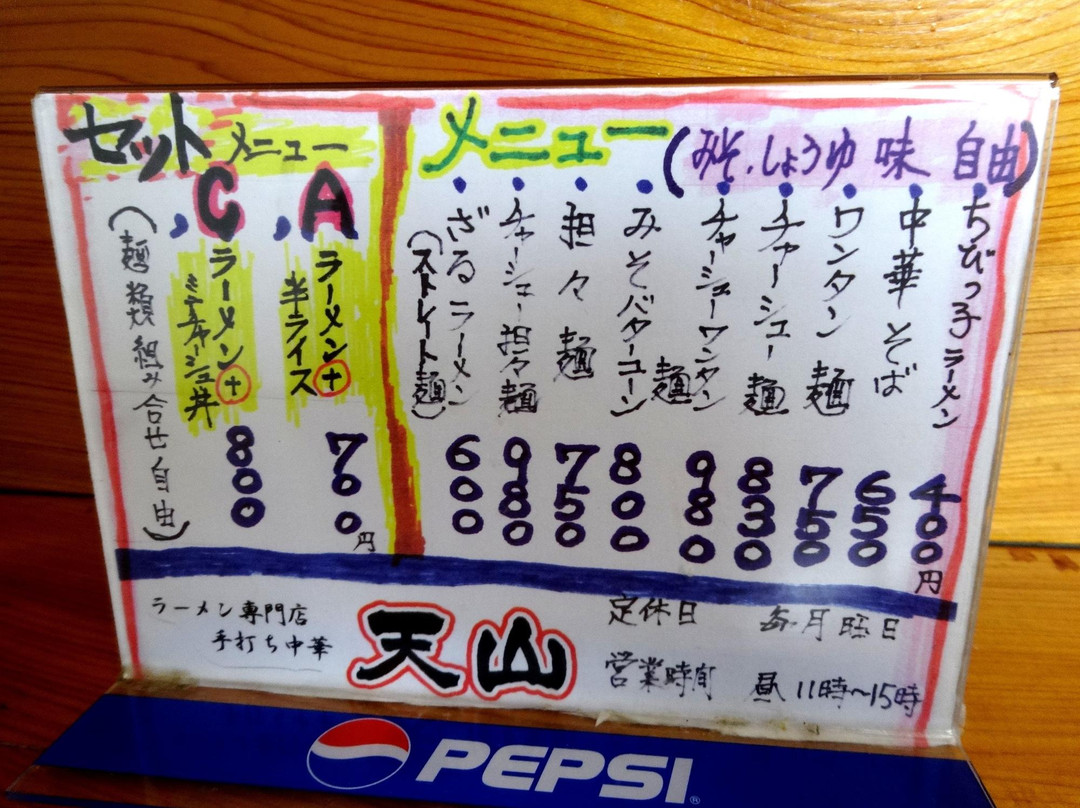 メニュー(みそ、しょうゆ 味 自由)
ちびっ子ラーメン 400円
中華そば 650
ワンタン麺 750
チャーシュー麺 830
チャーシューワンタン麺 980
みそバターコーン 800
担々麺 750
チャーシュー担々麺 980
ざるラーメン 600
(ストレイト麺)
セットメニュー
A、ラーメン+
半ライス 700円
C、ラーメン+
ミニチャーシュ丼 800
(麺類組み合せ自由)
ラーメン専門店
手打ち中華
天山
定休日 毎月曜日
営業時間 昼11時~15時
PEPSI